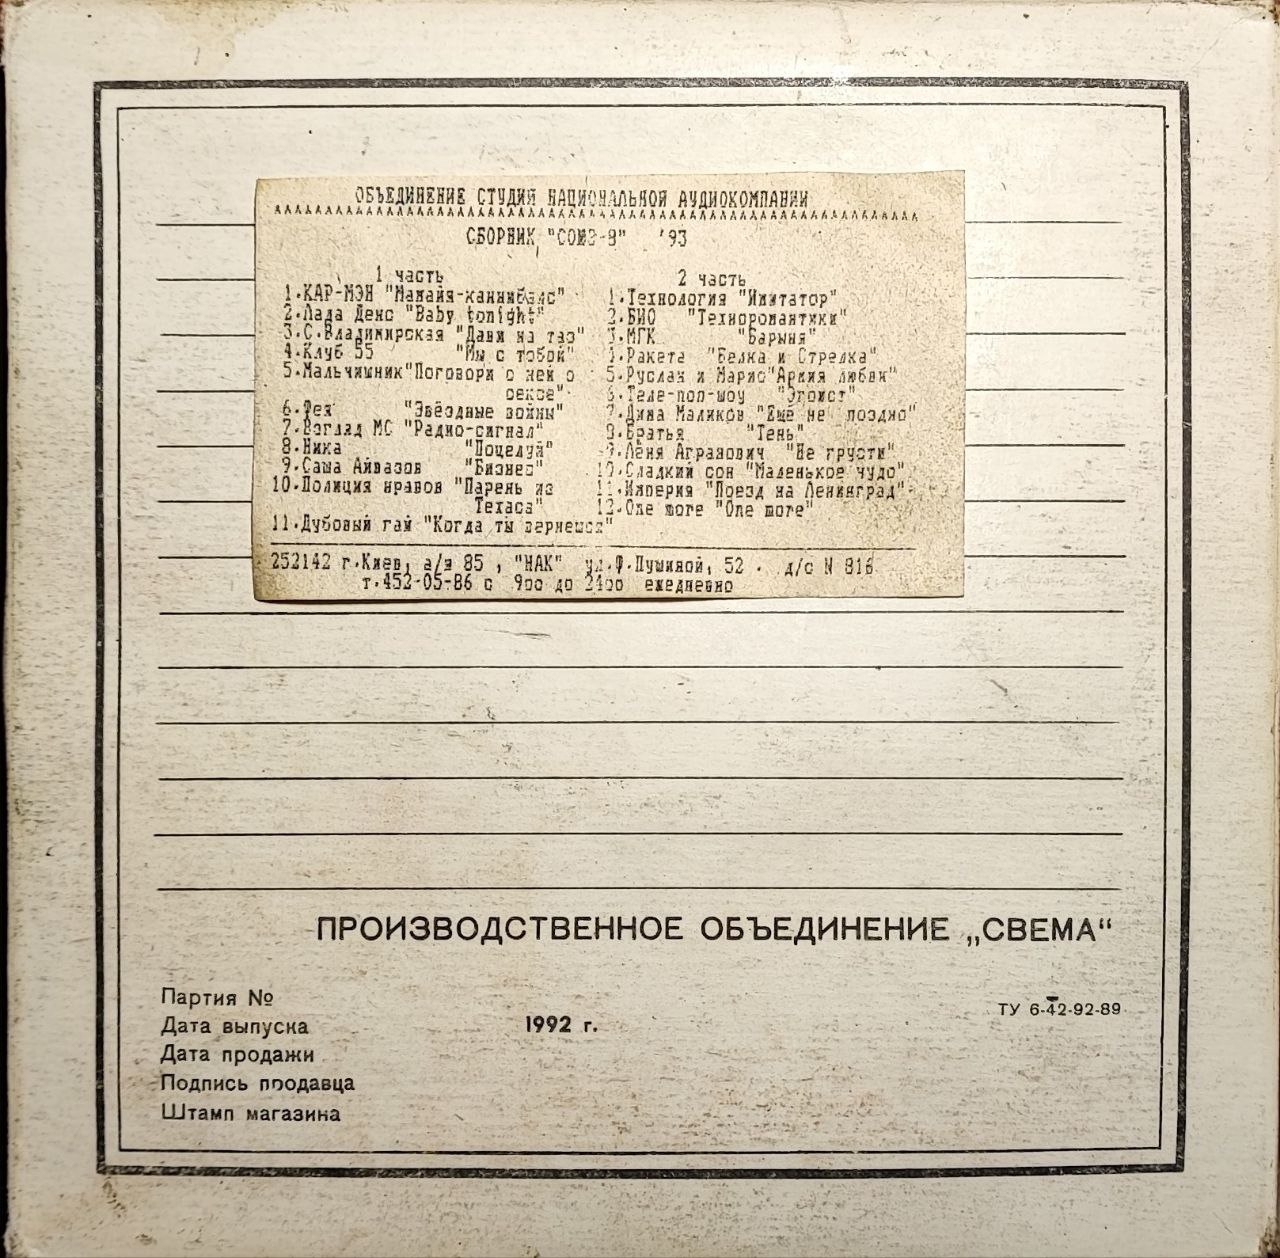 ОБЪЕДИНЕНИЕ СТУДИЙ НАЦИОНАЛЬНОЙ АУДИОКОМПАНИИ
СБОРНИК "СОЮЗ-9" '93
1 часть
1.КАР-МЭН "Манайя-каннибалс"
2.Лада Денс "Baby tonight"
3.С.Владимирская "Дави на газ"
4.Клуб 55 "Мы с тобой"
5.Мальчишник"Поговори с ней о
сексе"
6.Фея "Звёздные войны"
7.Взгляд МС "Радио-сигнал"
8.Ника "Поцелуй"
9.Саша Айвазов "Бизнес"
10.Полиция нравов "Парень из
Техаса"
11.Дубовый гай "Когда ты вернешся"
2 часть
1.Технология "Имитатор"
2.БИО "Техноромантики"
3.МГК "Барыня"
4.Ракета "Белка и Стрелка"
5.Руслан и Марис"Армия любви"
6.Теле-поп-шоу "Эгоист"
7.Дима Маликов "Ещё не поздно"
8.Братья "Тень"
9.Лёня Агранович "Не грусти"
10.Сладкий сон "Маленькое чудо"
11.Империя "Поезд на Ленинград"
12.One more "One more"
252142 г.Киев, а/я 85 , "НАК" ул.Ф.Пушиной, 52 . д/с N 816
т.452-05-86 с 9оо до 24оо ежедневно
ПРОИЗВОДСТВЕННОЕ ОБЪЕДИНЕНИЕ „СВЕМА“
Партия №
Дата выпуска 1992 г.
ТУ 6-42-92-89
Дата продажи
Подпись продавца
Штамп магазина